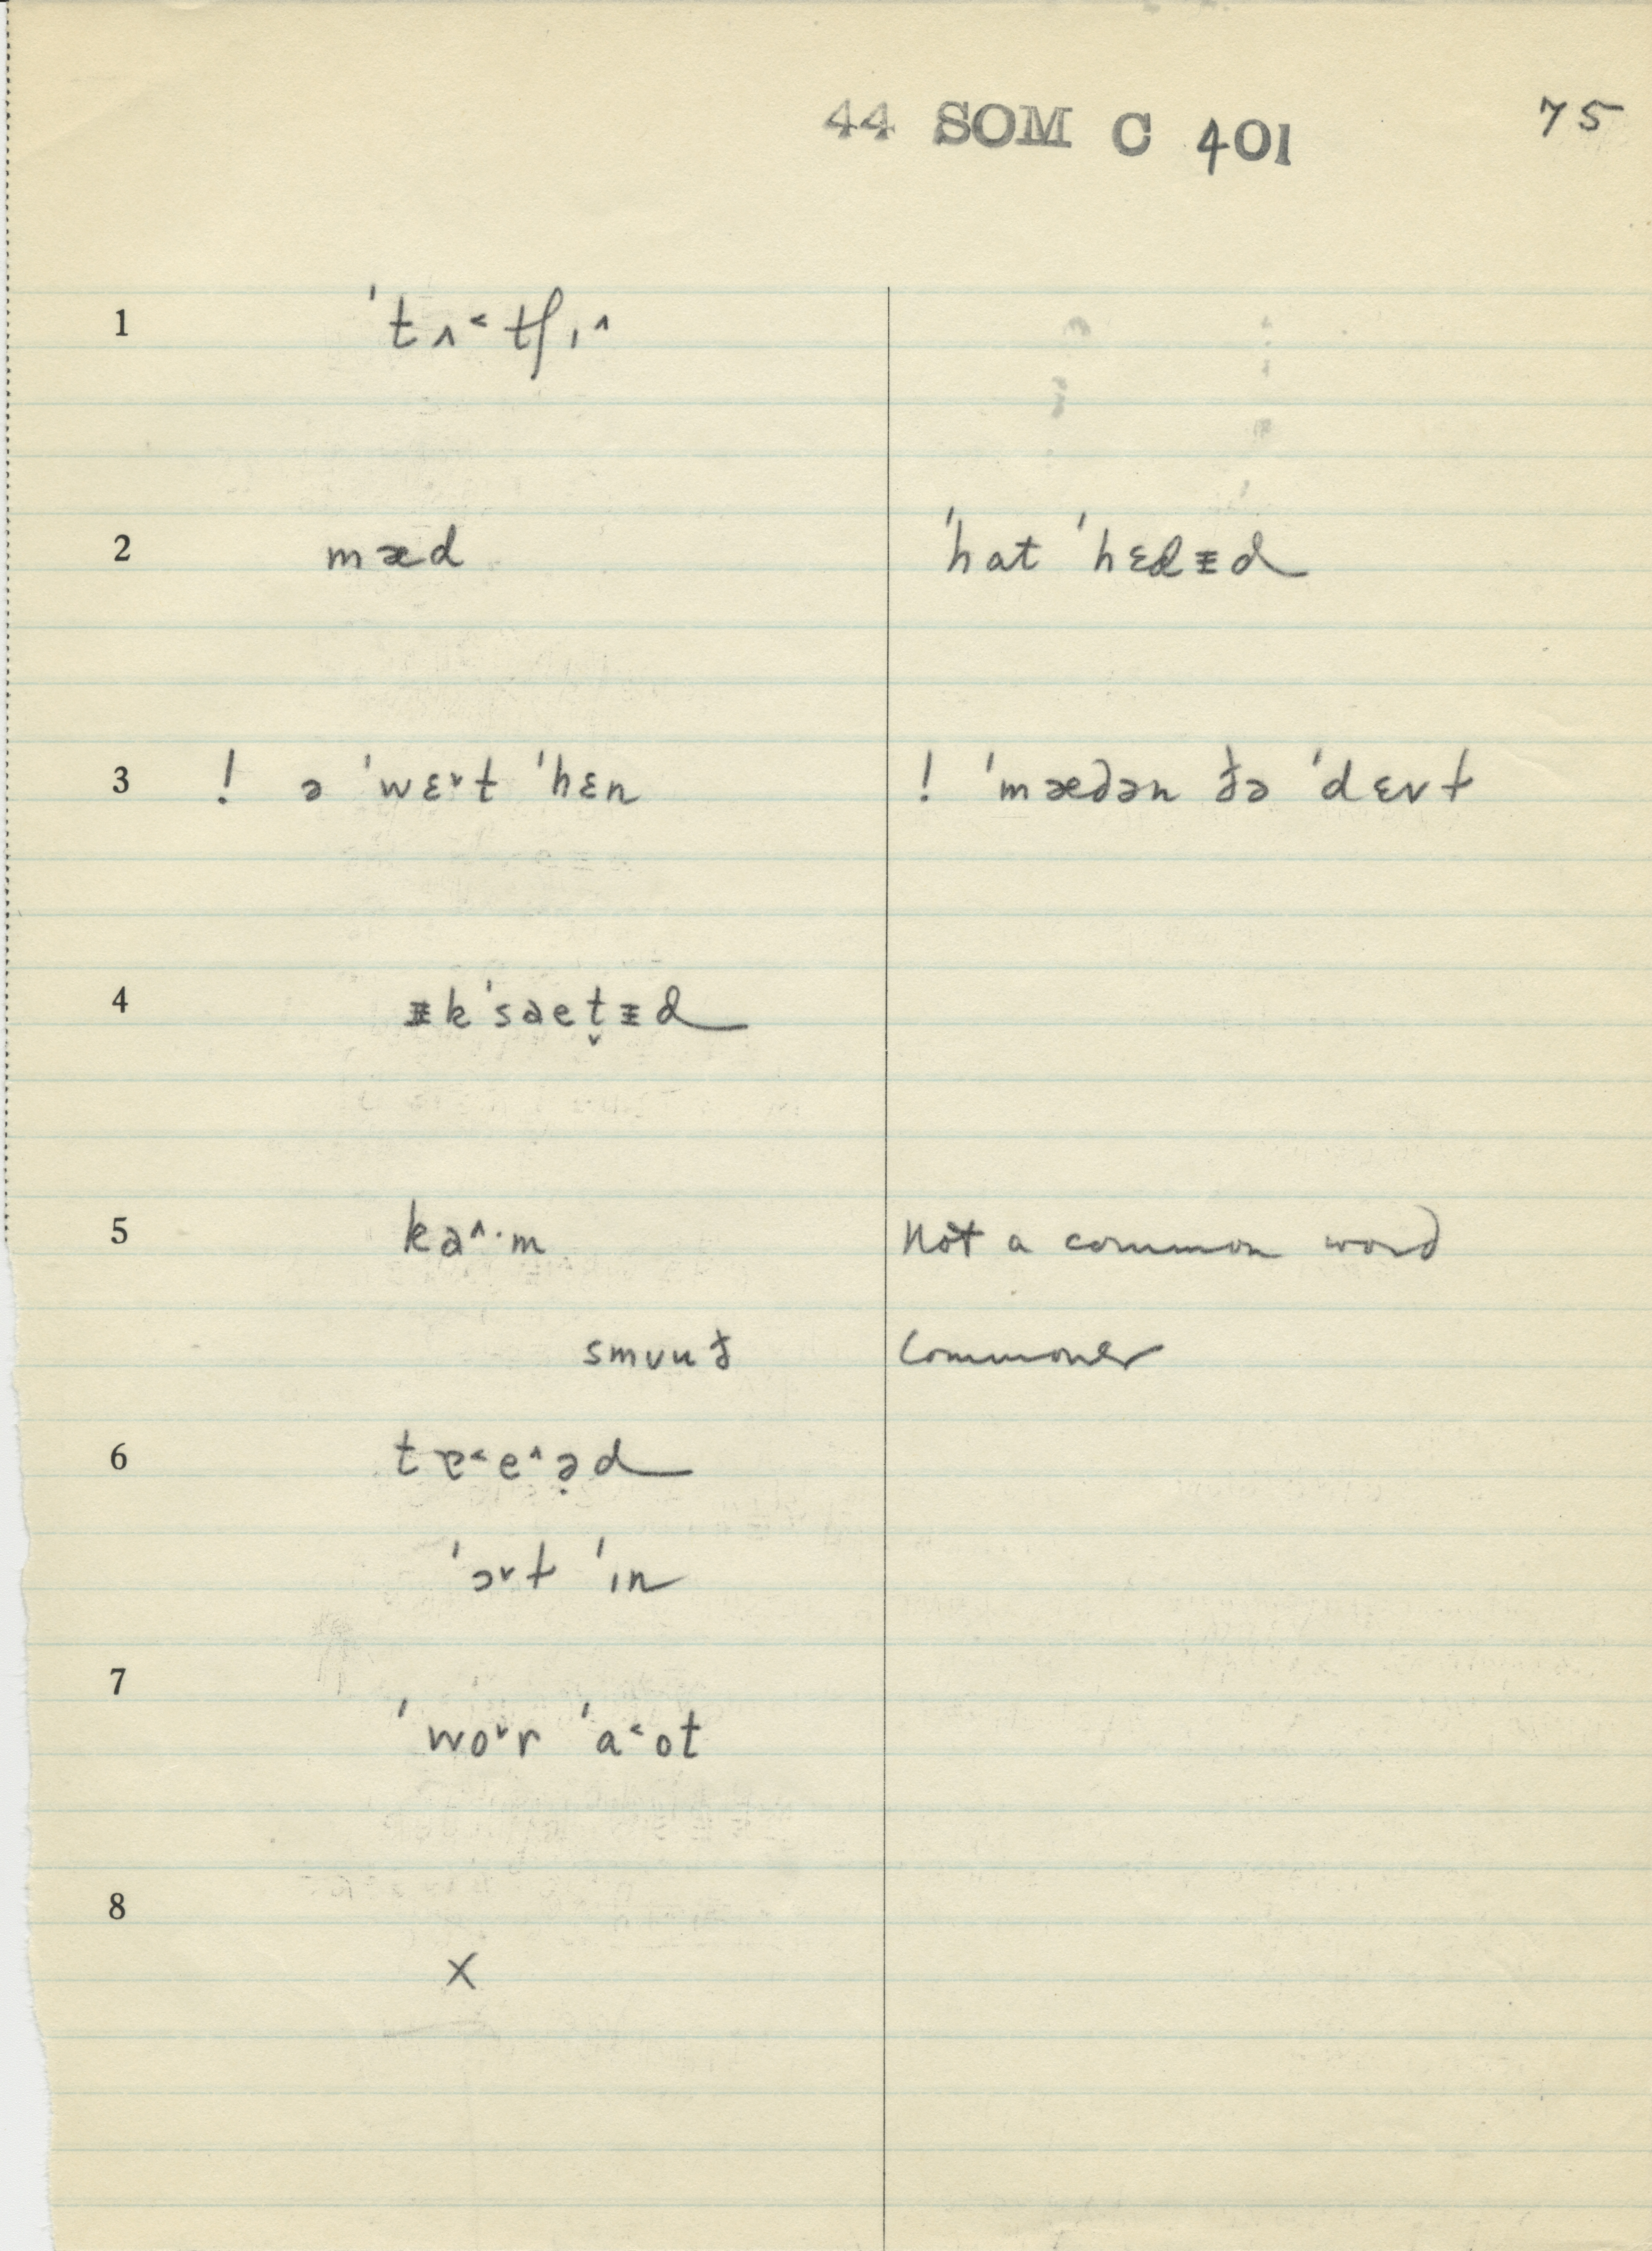 44 SOM C 401 75
1 ˈtʌ˂tʃɪ˄
2 mæd ˈhat ˈhɛdᵻd
3 ! ə ˈwɛ˅t ˈhɛn ! ˈmædən ðə ˈdɛvɫ
4 ᵻkˈsaet̬ᵻd
5 ka˄·m Not a common word
smuuð Commoner
6 tɐ˂e˄ə̣d
ˈɔ˅ɫ ˈɪn
7
ˈwo˅r ˈa˂ot
8
X